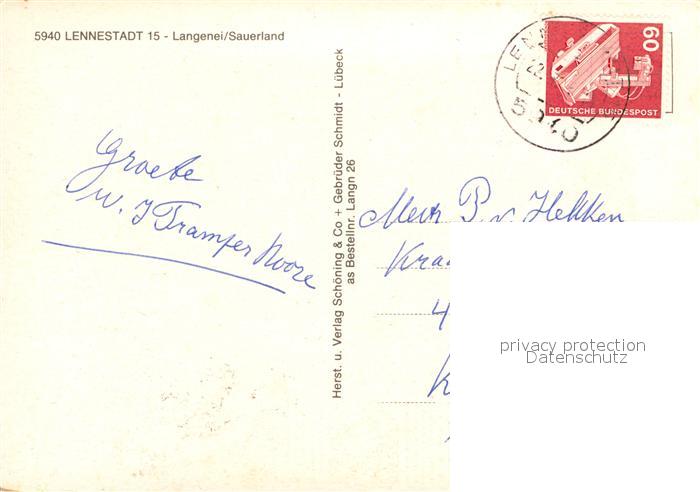 5940 LENNESTADT 15 - Langenei/Sauerland
Groete
W. J Tramper Moore
Herst. u. Verlag Schöning & Co + Gebrüder Schmidt - Lübeck
as Bestellnr. Langn 26
60
DEUTSCHE BUNDESPOST
P. v. Hekken
4
K
privacy protection
Datenschutz